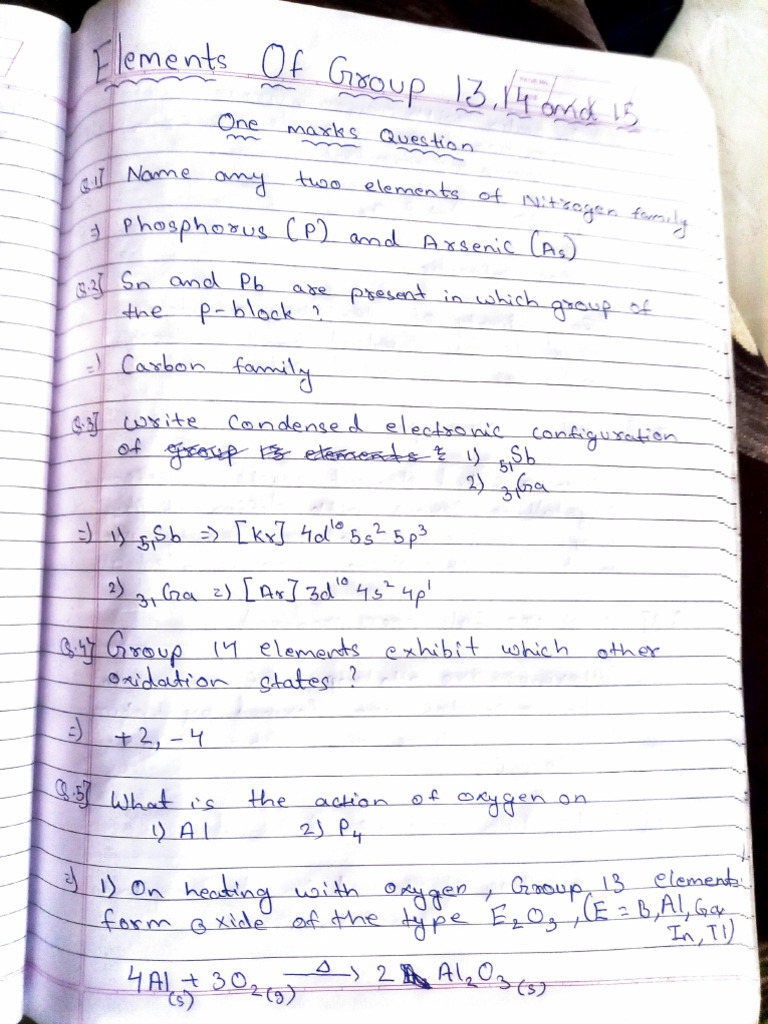 Elements Of Group 13, 14 and 15
One marks Question
Q.1] Name any two elements of Nitrogen family
⇒ Phosphorus (P) and Arsenic (As)
Q.2] Sn and Pb are present in which group of
the p-block?
⇒ Carbon family
Q.3] Write Condensed electronic configuration
of group 13 elements : 1) ₅₁Sb
2) ₃₁Ga
⇒ 1) ₅₁Sb ⇒ [Kr] 4d¹⁰ 5s² 5p³
2) ₃₁Ga ⇒ [Ar] 3d¹⁰ 4s² 4p¹
Q.4] Group 14 elements exhibit which other
oxidation states?
⇒ +2, -4
Q.5] What is the action of oxygen on
1) Al 2) P₄
⇒ 1) On heating with oxygen, Group 13 elements
form oxide of the type E₂O₃, (E = B, Al, Ga,
In, Tl)
4Al(s) + 3O₂(g) —Δ→ 2 Al₂O₃(s)